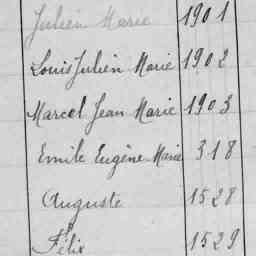 Julien Marie 1901
Louis Julien Marie 1902
Marcel Jean Marie 1903
Emile Eugène Marie 318
Auguste 1528
Félix 1529